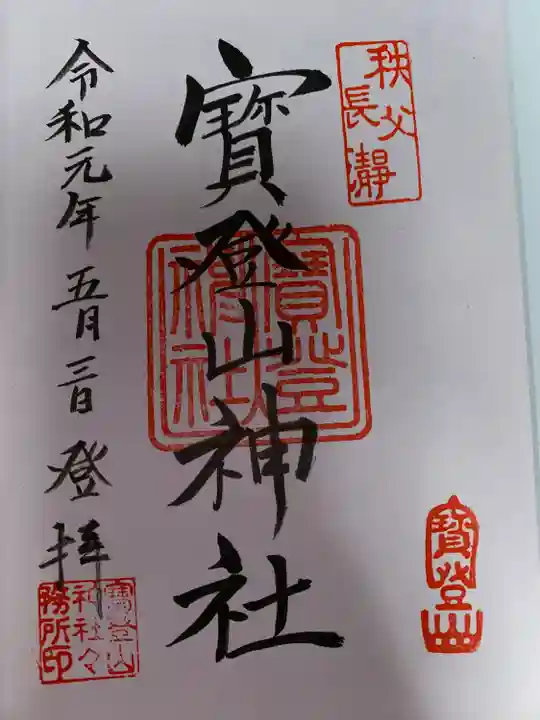 秩父
長瀞
寶登山神社
寶登
神社
令和元年五月三日登拝
寶登山
寶登山
神社々
務所印